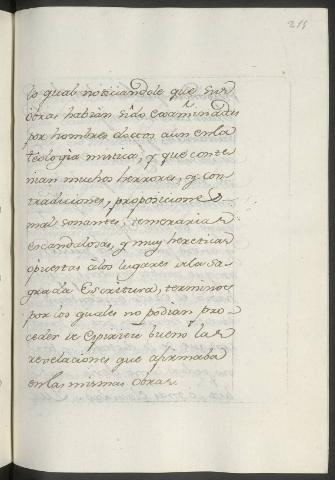 215
lo qual noticiandole que sus
obras habian sido examinadas
por hombres doctos aun en la
teologia mistica, y que conte
nian muchos herrores, y con
tradiciones, proposiciones
mal sonantes, temerarias
escandalosas, y muy hereticas
opuestas à los lugares de la Sa
grada Escritura, terminos
por los quales no podian pro
ceder de espiritu bueno las
revelaciones que afirmaba
en las mismas obras.